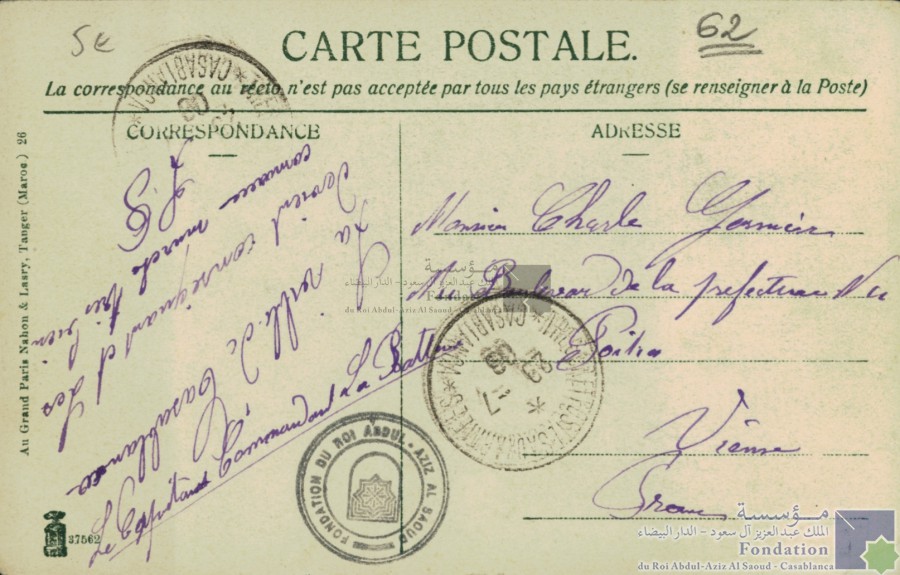 62
CARTE POSTALE.
La correspondance au recto n'est pas acceptée par tous les pays étrangers (se renseigner à la Poste)
CORRESPONDANCE
ADRESSE
La ville de Casablanca
devient conséquent et les
commerces marche très bien
Le Capitaine Commandant La Batterie
Monsieur Charle
Boulevard de la prefecture
Poitier
Vienne
France
CASABLANCA
CASABLANCA
Au Grand Paris Nahon & Lasry, Tanger (Maroc) 26
37562
FONDATION DU ROI ABDUL-AZIZ AL SAOUD
مؤسسة
الملك عبد العزيز آل سعود - الدار البيضاء
Fondation
du Roi Abdul-Aziz Al Saoud - Casablanca
مؤسسة
الملك عبد العزيز آل سعود - الدار البيضاء
Fondation
du Roi Abdul-Aziz Al Saoud - Casablanca